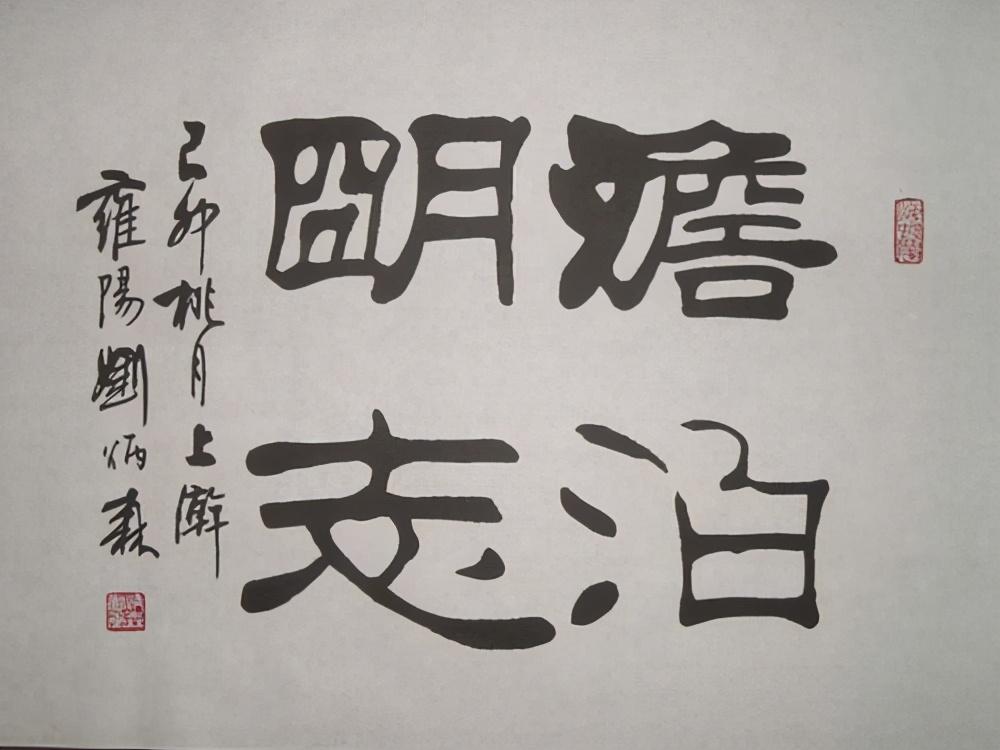 澹泊
朙志
己卯桃月上澣
雍陽劉炳森